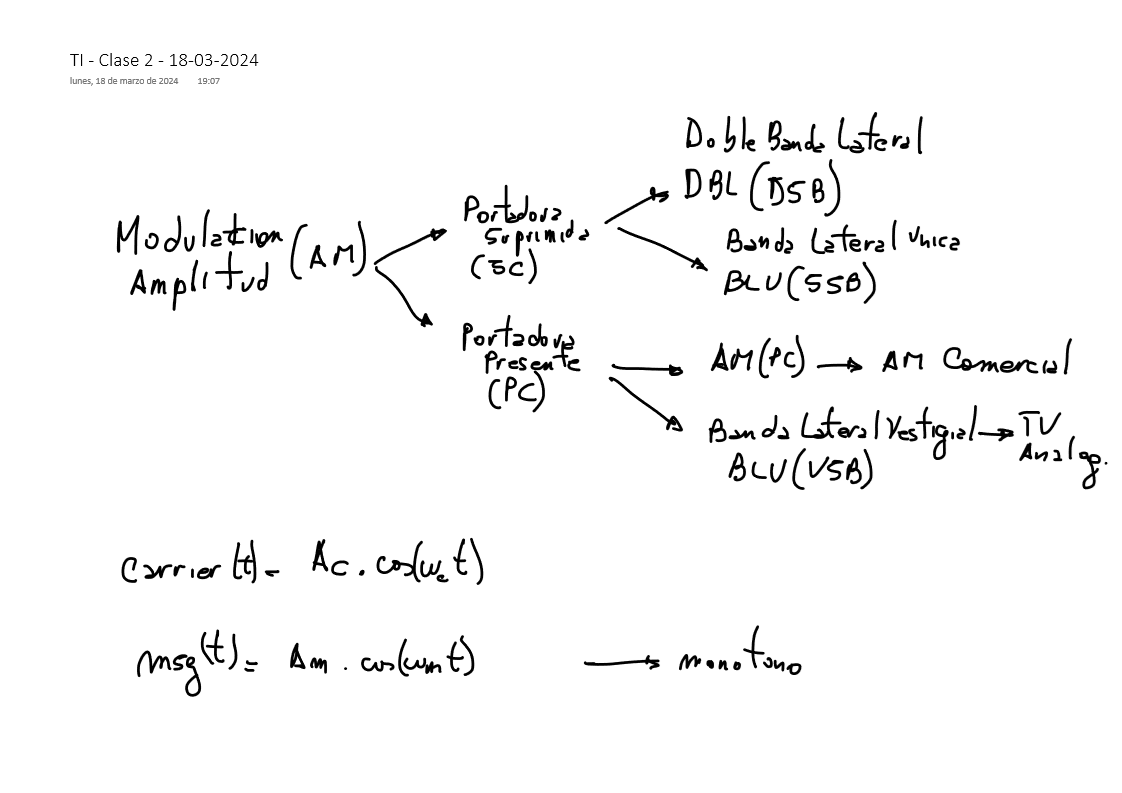 TI - Clase 2 - 18-03-2024
lunes, 18 de marzo de 2024 19:07
Doble Banda Lateral
DBL (DSB)
Portadora
Suprimida
(SC)
Modulation
Amplitud (AM)
Banda Lateral Unica
BLU (SSB)
Portadora
Presente
(PC)
AM(PC) → AM Comercial
Banda Lateral Vestigial → TV
Analog.
BLU (VSB)
Carrier(t) = Ac . cos(wc t)
msg(t) = Am . cos(wm t) → monotono